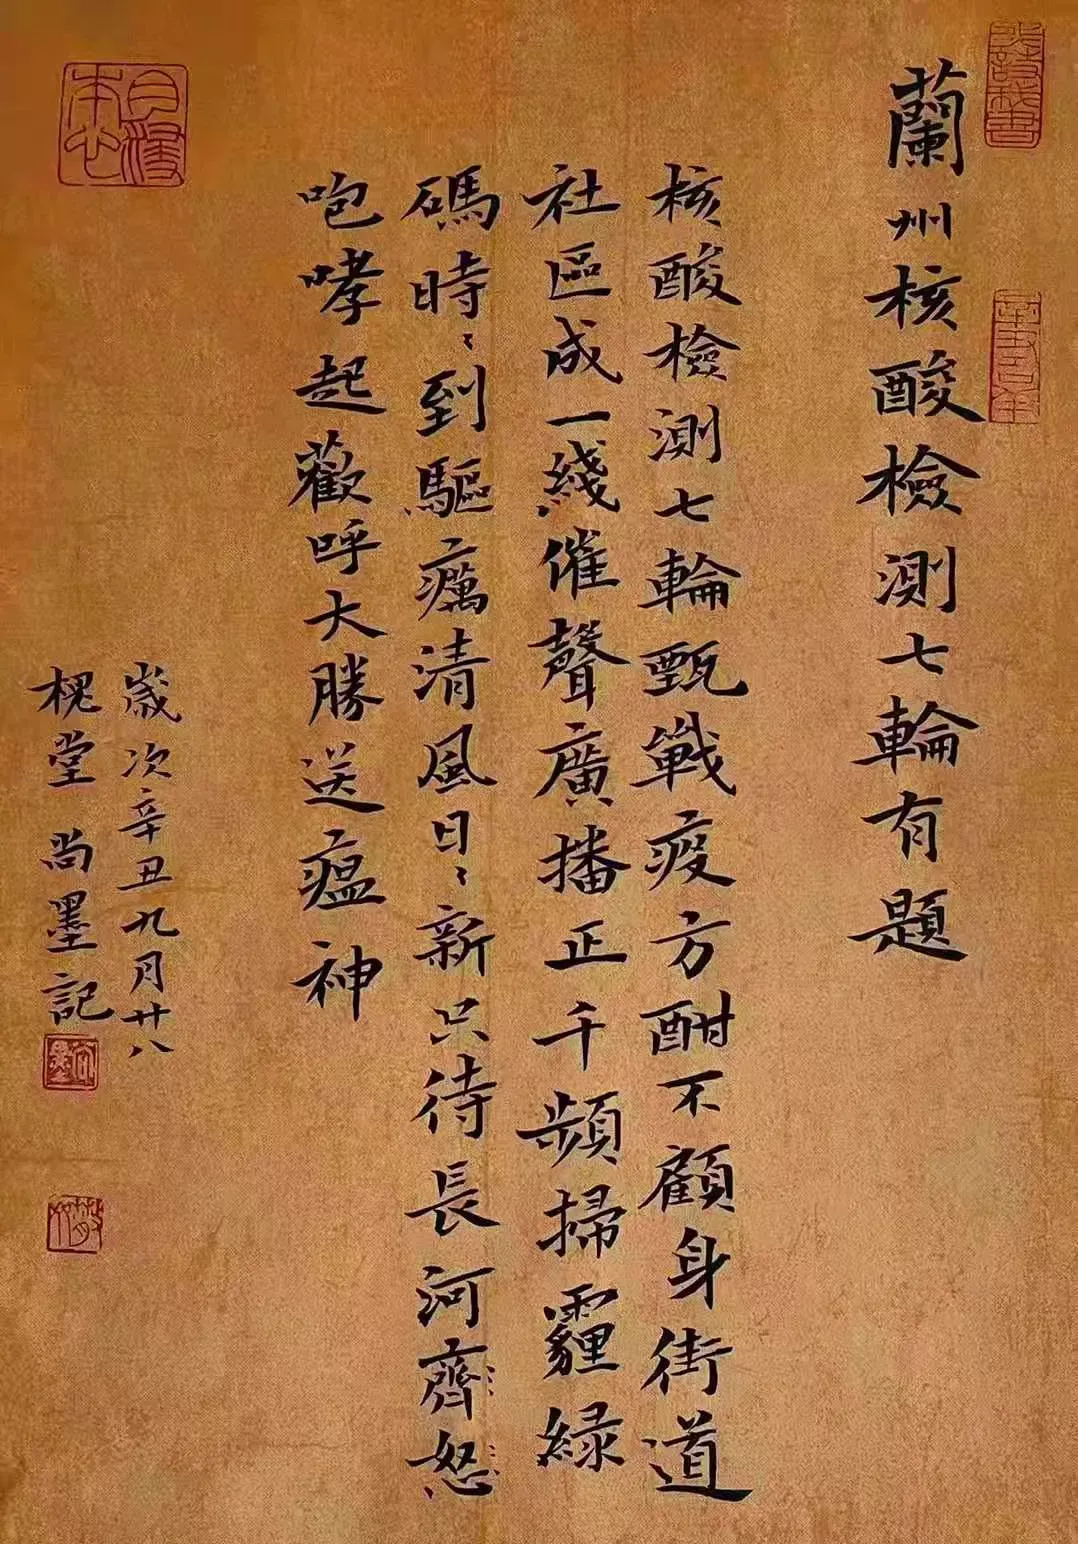 蘭州核酸檢測七輪有題
核酸檢測七輪甄戰疫方酣不顧身街道
社區成一綫催聲廣播正千頻掃霾緑
碼時〻到驅癘清風日〻新只待長河齊怒
咆哮起歡呼大勝送瘟神
歲次辛丑九月廿八
槐堂尚墨記